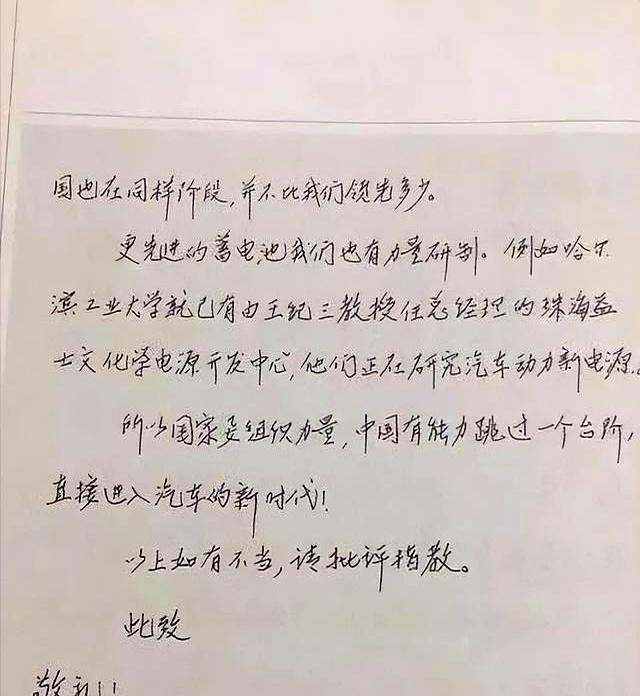 国也在同样阶段，并不比我们领先多少。
更先进的蓄电池我们也有力量研制。例如哈尔
滨工业大学就已有由王纪三教授任总经理的珠海益
士文化学电源开发中心，他们正在研究汽车动力新电源。
所以国家要组织力量，中国有能力跳过一个台阶，
直接进入汽车的新时代！
以上如有不当，请批评指教。
此致
敬礼！！